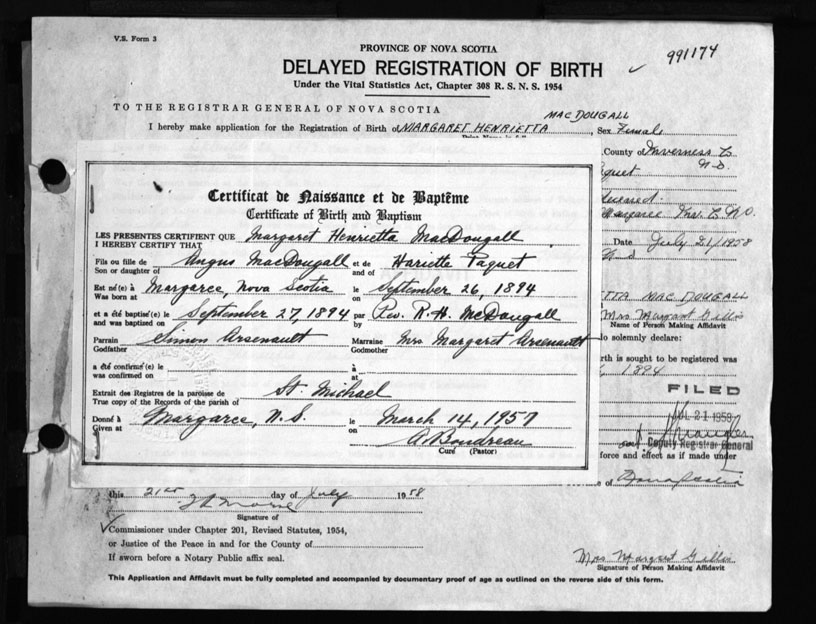 V.S. Form 3
PROVINCE OF NOVA SCOTIA
991174
DELAYED REGISTRATION OF BIRTH
Under the Vital Statistics Act, Chapter 308 R. S. N. S. 1954
TO THE REGISTRAR GENERAL OF NOVA SCOTIA
MACDOUGALL
I hereby make application for the Registration of Birth of MARGARET HENRIETTA, Sex Female
County of Inverness Co
N.S.
Paquet
deceased
Margaree Inv. Co N.S.
Date July 21/1958
N.S
Certificat de Naissance et de Baptême
Certificate of Birth and Baptism
LES PRESENTES CERTIFIENT QUE Margaret Henrietta MacDougall
I HEREBY CERTIFY THAT
Fils ou fille de Angus MacDougall et de Hariette Paquet
Son or daughter of and of
Est né(e) à Margaree, Nova Scotia le September 26, 1894
Was born at on
et a été baptisé(e) le September 27, 1894 par Rev. R. H. McDougall
and was baptised on by
Parrain Simon Arsenault Marraine Mrs Margaret Arsenault
Godfather Godmother
a été confirmé(e) le à
was confirmed on at
Extrait des Registres de la paroisse de St. Michael
True copy of the Records of the parish of
Donné à Margaree, N.S. le March 14, 1957
Given at on
A. Boudreau
Curé (Pastor)
ETTA MAC DOUGALL
Mrs Margaret Gillis
Name of Person Making Affidavit
do solemnly declare:
birth is sought to be registered was
1894
FILED
JUL 21 1958
Deputy Registrar General
force and effect as if made under
of Nova Scotia
this 21st day of July 1958
Signature of
Commissioner under Chapter 201, Revised Statutes, 1954,
or Justice of the Peace in and for the County of
If sworn before a Notary Public affix seal.
Mrs Margaret Gillis
Signature of Person Making Affidavit
This Application and Affidavit must be fully completed and accompanied by documentary proof of age as outlined on the reverse side of this form.